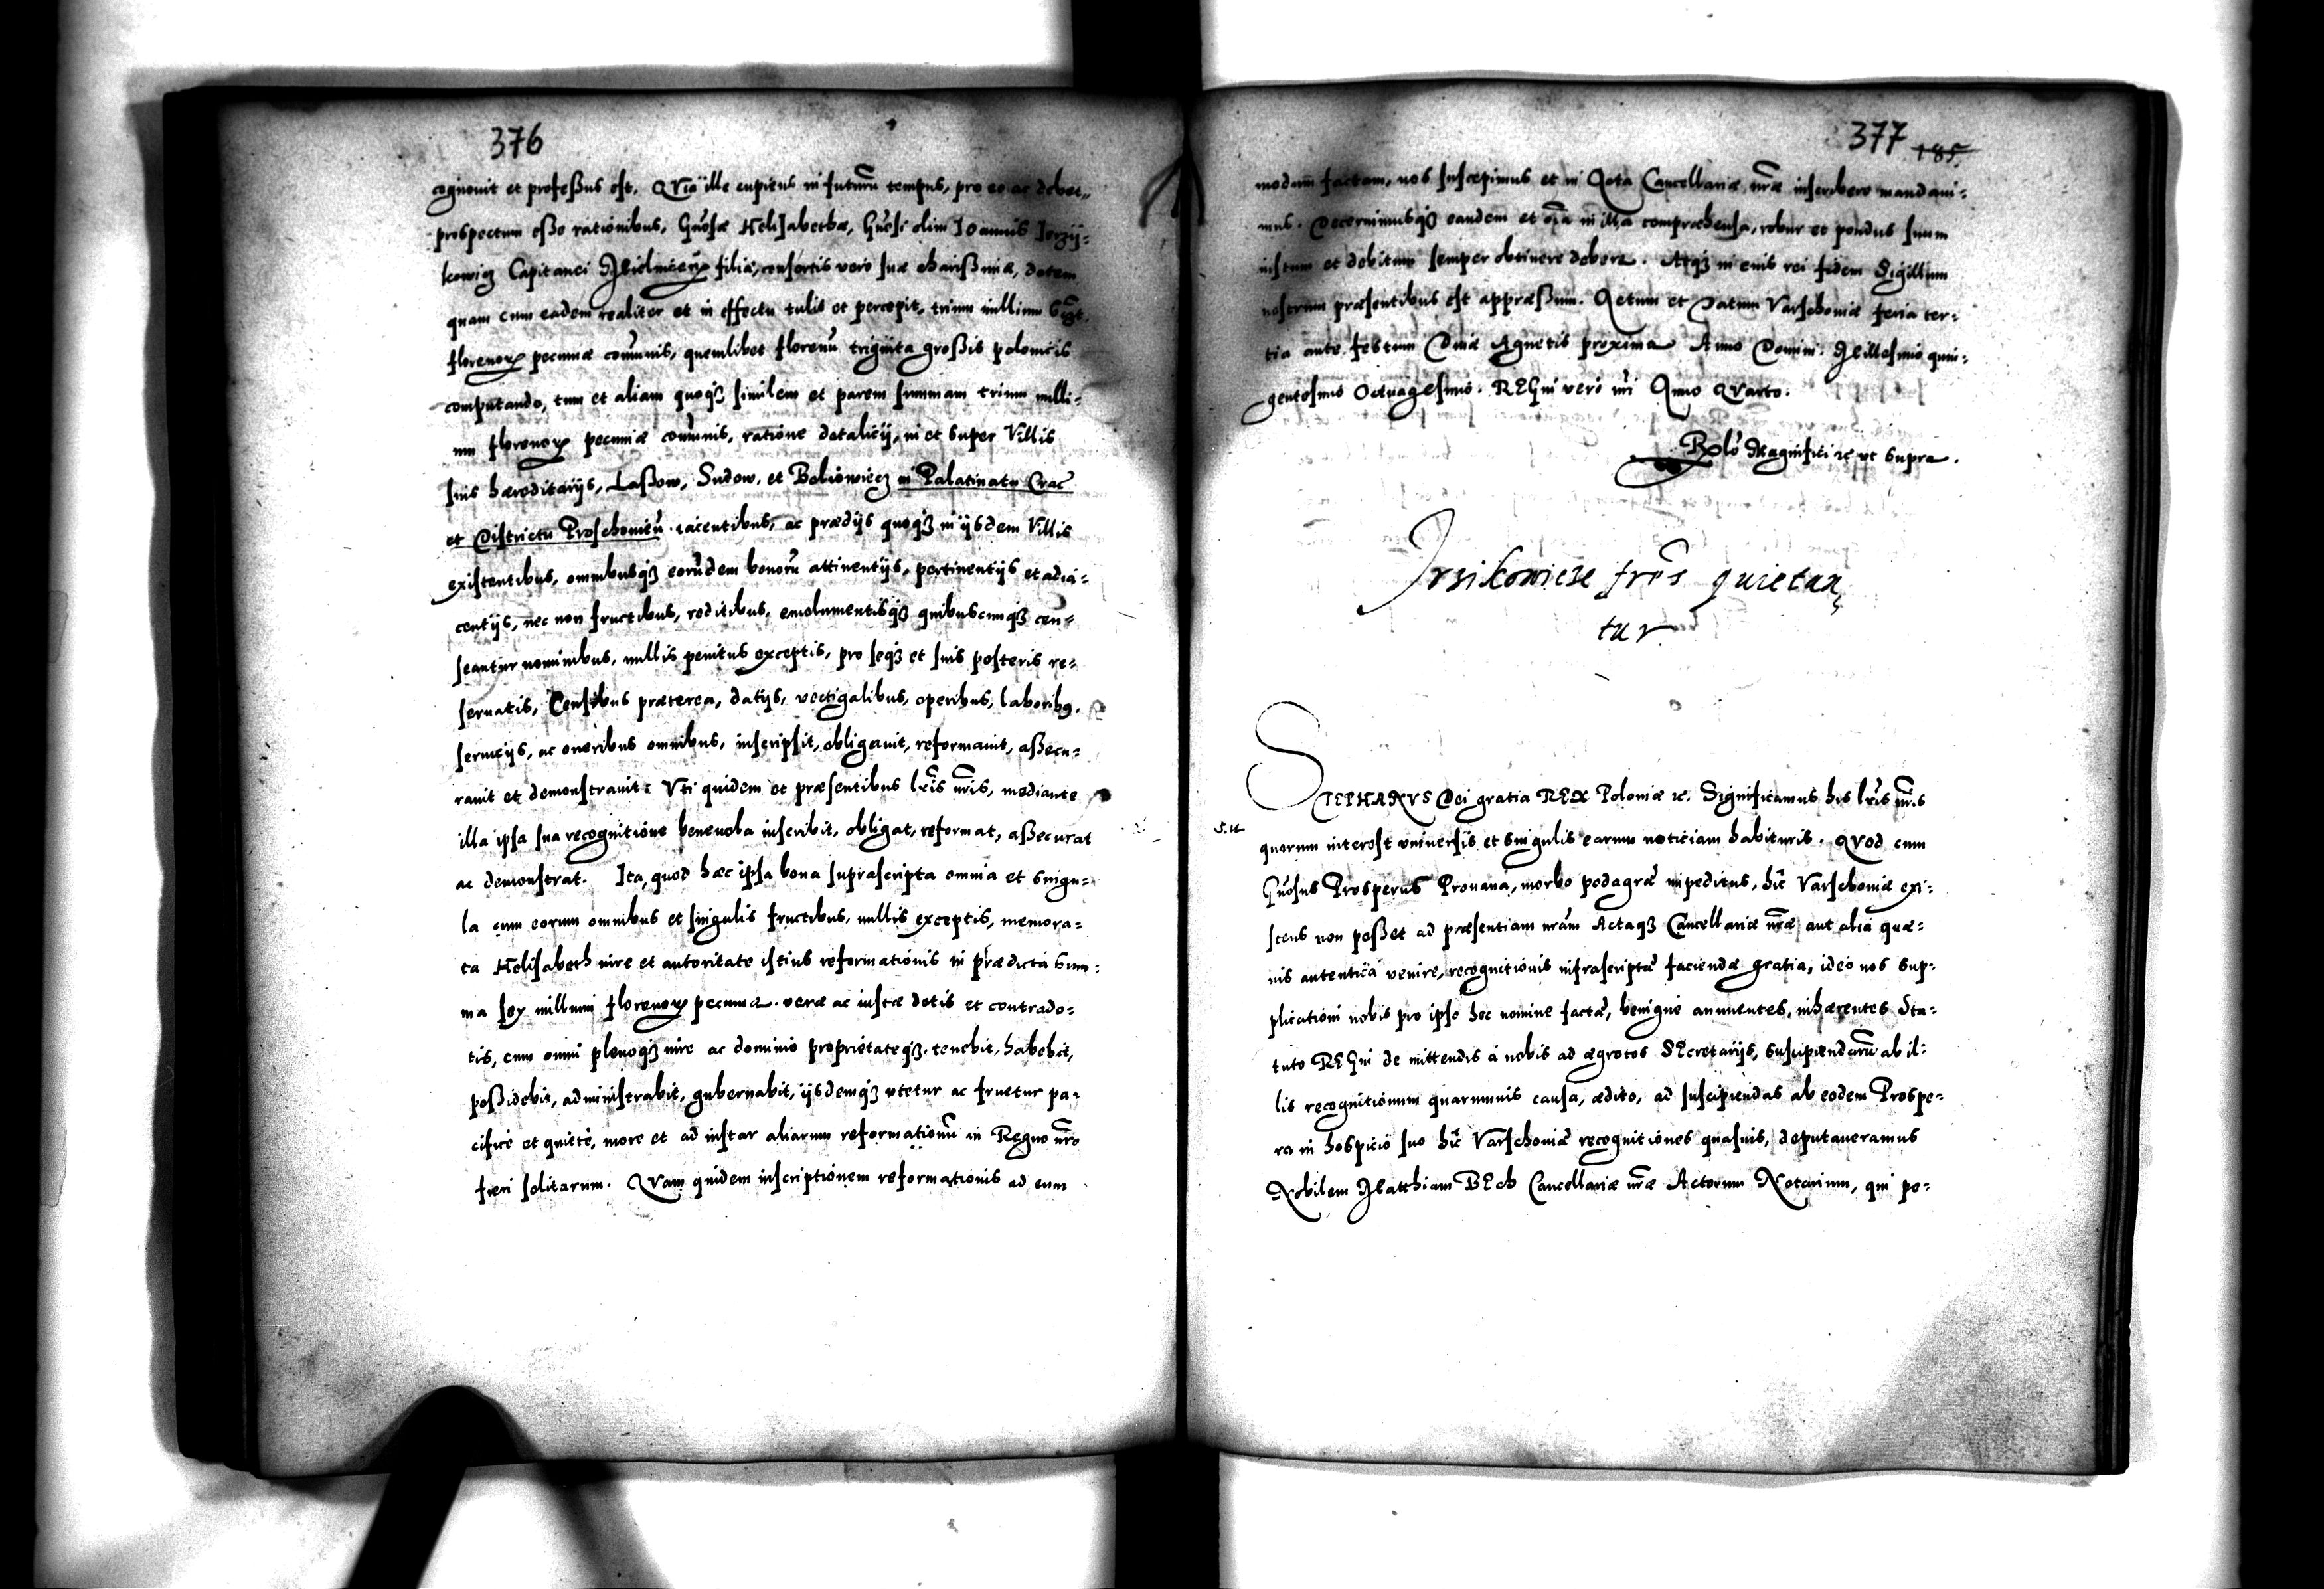 376
cognouit et profeßus est. QVia ille cupiens in futurũ tempus, pro eo ac debet,,
prospectum eße rationibus, Gnõsæ Helisabethæ, Gnõsi olim Ioannis
kowicz Capitanei filiæ, consortis vero suæ charißimæ, dotem
quam cum eadem realiter et in effectu tulit et percepit, trium millium
florenoꝝ pecuniæ com̃unis, quemlibet florenũ triginta großis polonicis
computando, tum et aliam quoqꝫ similem et parem summam trium milli=
um florenoꝝ pecuniæ com̃unis, ratione dotalicij, in et super Villis
suis hæreditarijs, Laßow, Sudow, et Boliowicz in Palatinatu Crac̃
et Districtu Proschouieñ. iacentibus, ac prædijs quoqꝫ in ijsdem Villis
existentibus, omnibusqꝫ eorũdem bonorũ attinentijs, pertinentijs et adia=
centijs, nec non fructibus, reditibus, emolumentisqꝫ quibuscunqꝫ cen=
seantur nominibus, nullis penitus exceptis, pro seqꝫ et suis posteris re=
seruatis, Censibus præterea, datijs, vectigalibus, operibus, laboribꝫ,
seruicijs, ac oneribus omnibus, inscripsit, obligauit, reformauit, aßecu=
rauit et demonstrauit: Vti quidem et præsentibus lr̃is nr̃is, mediante
illa ipsa sua recognitione beneuola inscribit, obligat, reformat, aßecurat
ac demonstrat. Ita, quod hæc ipsa bona suprascripta omnia et singu=
la cum eorum omnibus et singulis fructibus, nullis exceptis, memora=
ta Helisabeth iure et autoritate istius reformationis in prædicta sum=
ma sex millium florenoꝝ pecuniæ. veræ ac iustæ dotis et contrado=
tis, cum omni plenoqꝫ iure ac dominio proprietateqꝫ. tenebit, habebit,
poßidebit, administrabit, gubernabit, ijsdemqꝫ vtetur ac fruetur pa=
cificè et quietè, more et ad instar aliarum reformationũ in Regno nr̃o
fieri solitarum. QVam quidem inscriptionem reformationis ad eum
377 185.
modum factam, nos suscepimus et in Acta Cancellariæ nr̃æ inscribere mandaui=
mus. Decernimusqꝫ eandem et oĩa in illa compræhensa, robur et pondus suum
iustum et debitum semper obtinere debere. Atqꝫ in eius rei fidem Sigillum
nostrum præsentibus est appræßum. Actum et Datum Varschouiæ feria ter=
tia ante festum Diuæ Agnetis proxima Anno Domini. Millesimo quin=
gentesimo Octuagesimo. REGni verò nr̃i Anno QVarto.
Rꝫlõ Magnifici ⁊c vt supra.
Irsikowicze frẽs quietan,
tur
STEPHANVS Dei gratia REX Poloniæ ⁊c. Significamus his lr̃is nr̃is
quorum interest vniuersis et singulis earum noticiam habituris. QVod cum
Gnõsus Prosperus Prouana, morbo podagræ impeditus, hĩc Varschouiæ exi=
stens non poßet ad præsentiam nr̃am Actaqꝫ Cancellariæ nr̃æ aut alia quæ=
uis autentica venire, recognitionis infrascriptæ faciendæ gratia, ideo nos sup=
plicationi nobis pro ipso hoc nomine factæ, benignè annuentes, inhærentes Sta=
tuto REGni de mittendis à nobis ad ægrotos SEcretarijs, suscipiendarũ ab il=
lis recognitionum quarumuis causa, ædito, ad suscipiendas ab eodem Prospe=
ro in hospicio suo hĩc Varschouiæ recognitiones quasuis, deputaueramus
Nobilem Matthiam BEch Cancellariæ nr̃æ Actorum Notarium, qui po=